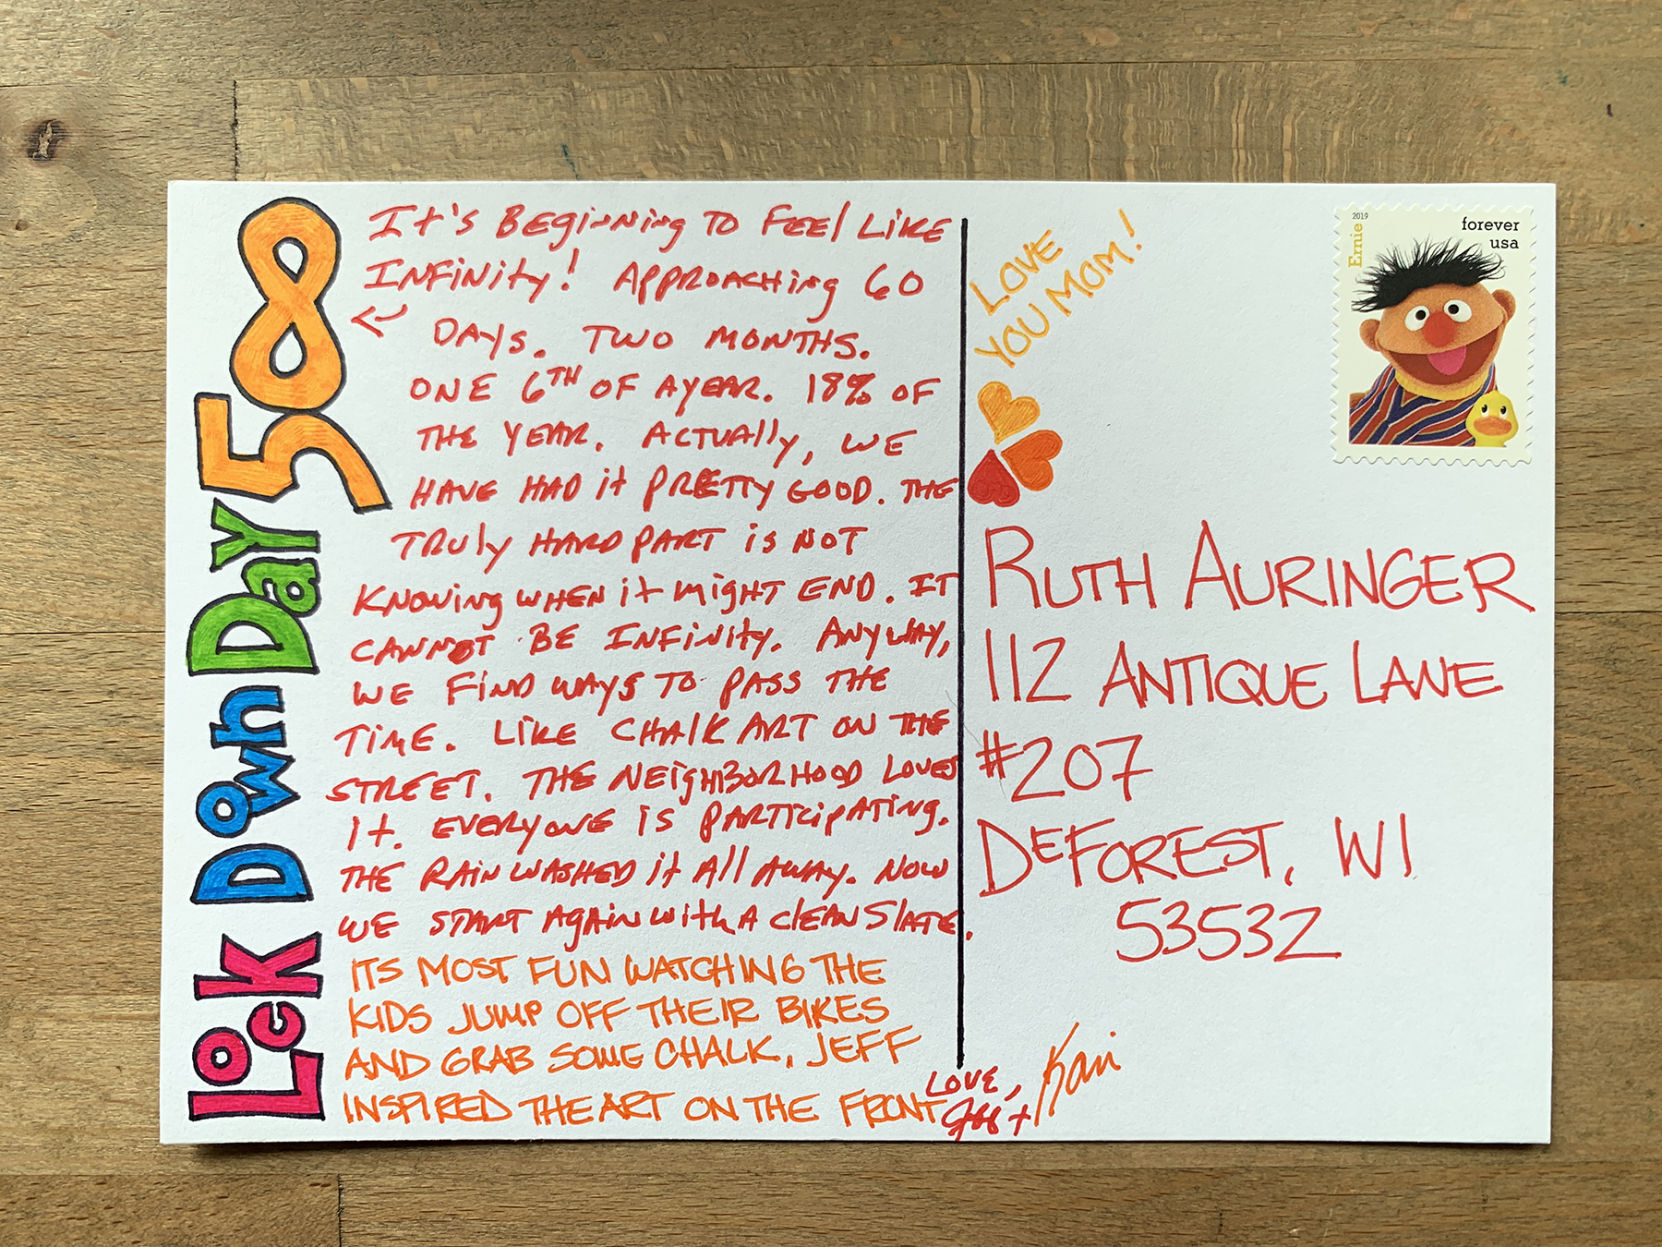 Lock Down Day 58
It's Beginning to Feel Like
Infinity! Approaching 60
Days. Two Months.
One 6th of a year. 18% of
the year. Actually, we
have had it pretty good. The
truly hard part is not
knowing when it might end. It
cannot be infinity. Anyway,
we find ways to pass the
time. Like chalk art on the
street. The neighborhood loves
it. Everyone is participating.
The rain washed it all away. Now
we start again with a clean slate.
ITS MOST FUN WATCHING THE
KIDS JUMP OFF THEIR BIKES
AND GRAB SOME CHALK, JEFF
INSPIRED THE ART ON THE FRONT
LOVE,
Jeff + Kari
LOVE
YOU MOM!
2019
Ernie
forever
usa
RUTH AURINGER
112 ANTIQUE LANE
#207
DEFOREST, WI
53532